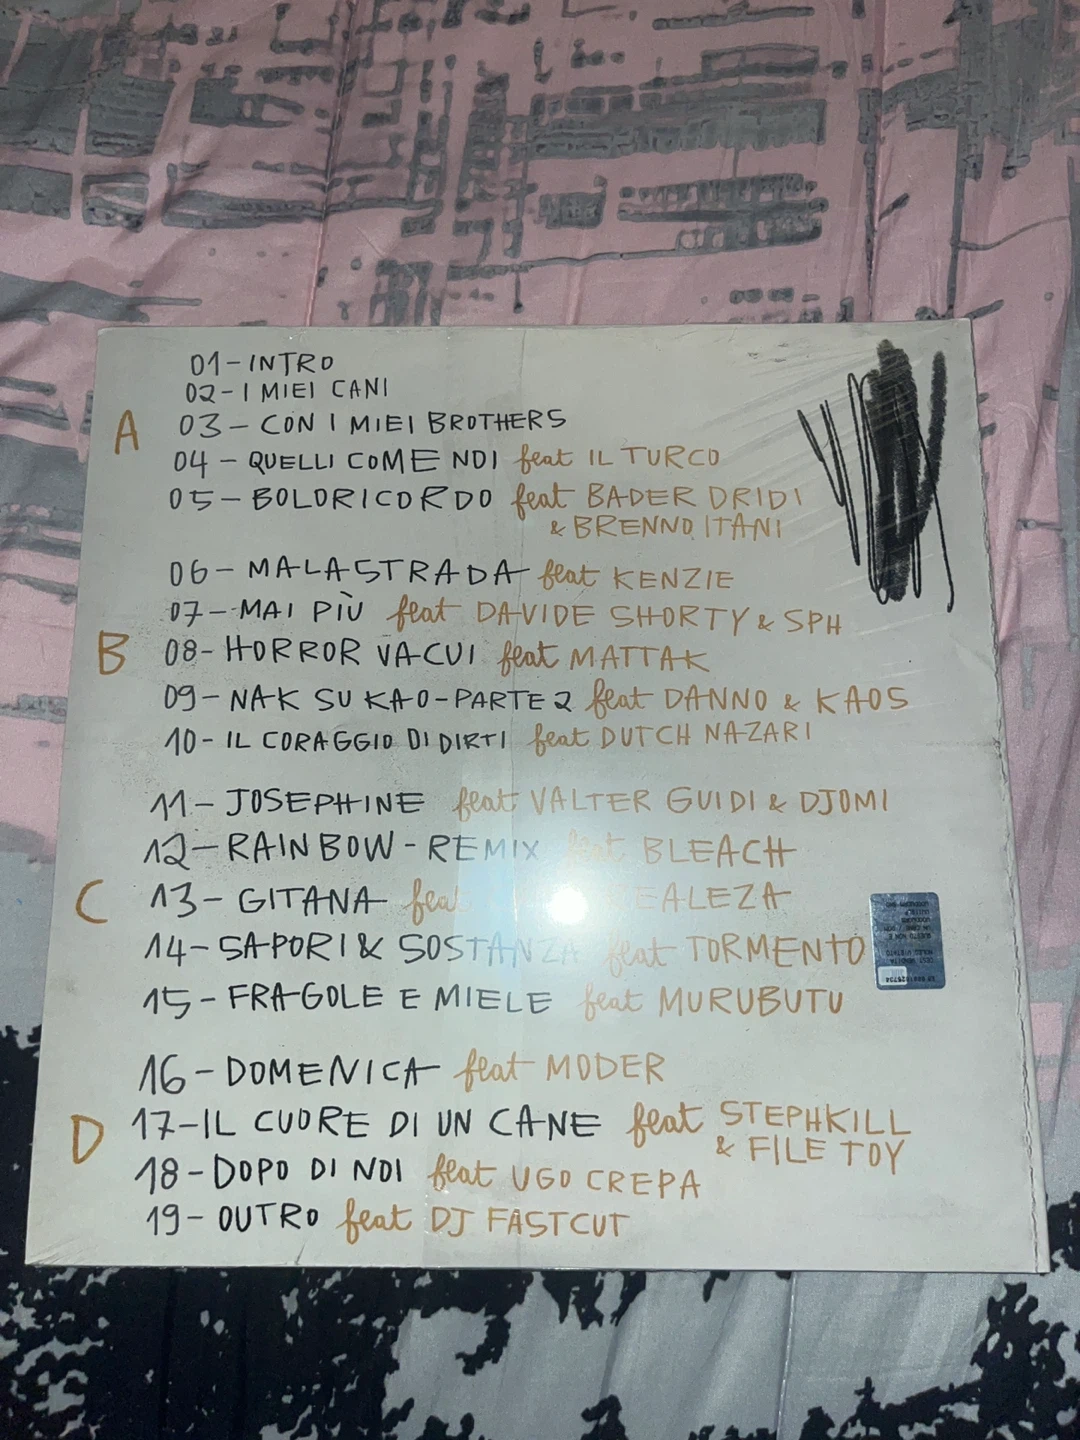 01-INTRO
02-I MIEI CANI
A
03-CON I MIEI BROTHERS
04-QUELLI COME NOI feat IL TURCO
05-BOLORICORDO feat BADER DRIDI
& BRENNO ITANI
06-MALASTRADA feat KENZIE
07-MAI PIÙ feat DAVIDE SHORTY & SPH
B
08-HORROR VACUI feat MATTAK
09-NAK SU KAO-PARTE 2 feat DANNO & KAOS
10-IL CORAGGIO DI DIRTI feat DUTCH NAZARI
11-JOSEPHINE feat VALTER GUIDI & DJOMI
12-RAINBOW-REMIX feat BLEACH
C
13-GITANA feat EALEZA
14-SAPORI & SOSTANZA feat TORMENTO
15-FRAGOLE E MIELE feat MURUBUTU
16-DOMENICA feat MODER
D
17-IL CUORE DI UN CANE feat STEPHKILL
& FILE TOY
18-DOPO DI NOI feat UGO CREPA
19-OUTRO feat DJ FASTCUT